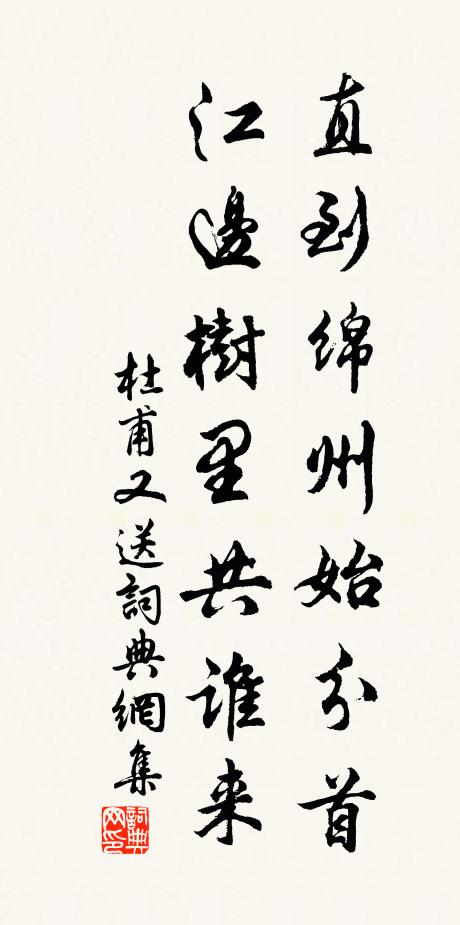 直到绵州始分首
江邊樹里共誰来
杜甫又送詞典網集
詞典网印